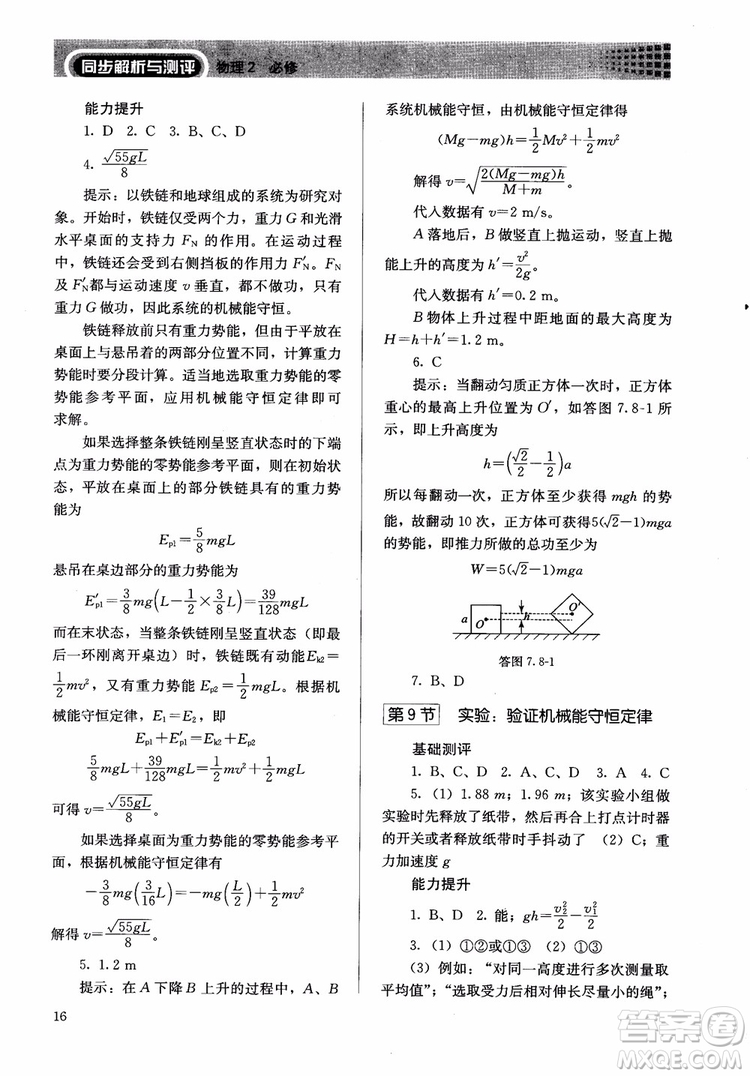 同步解析与测评 物理2 必修
能力提升
1. D  2. C  3. B、C、D
4. √(55gL)/8
提示：以铁链和地球组成的系统为研究对
象。开始时，铁链仅受两个力，重力 G 和光滑
水平桌面的支持力 F_N 的作用。在运动过程
中，铁链还会受到右侧挡板的力 F′_N。F_N
及 F′_N 都与运动速度 v 垂直，都不做功，只有
重力 G 做功，因此系统的机械能守恒。
铁链释放前只有重力势能，但由于平放在
桌面上与悬吊着的两部分位置不同，计算重力
势能时要分段计算。适当地选取重力势能的零
势能参考平面，应用机械能守恒定律即可
求解。
如果选择整条铁链刚呈竖直状态时的下端
点为重力势能的零势能参考平面，则在初始状
态，平放在桌面上的部分铁链具有的重力势
能为
E_p1=5/8 mgL
悬吊在桌边部分的重力势能为
E′_p1=3/8 mg(L−1/2×3/8 L)=39/128 mgL
而在末状态，当整条铁链刚呈竖直状态（即最
后一环刚离开桌边）时，铁链有动能 E_k2=
1/2 mv²，又有重力势能 E_p2=1/2 mgL。根据机
械能守恒定律，E₁=E₂，即
E_p1+E′_p1=E_k2+E_p2
5/8 mgL+39/128 mgL=1/2 mv²+1/2 mgL
可得 v=√(55gL)/8。
如果选择桌面为重力势能的零势能参考平
面，根据机械能守恒定律有
−3/8 mg(3/16 L)=−mg(L/2)+1/2 mv²
解得 v=√(55gL)/8。
5. 1.2 m
提示：在 A 下降 B 上升的过程中，A、B
16
系统机械能守恒，由机械能守恒定律得
(Mg−mg)h=1/2 Mv²+1/2 mv²
解得 v=√(2(Mg−mg)h/(M+m))
代入数据有 v=2 m/s。
A 落地后，B 做竖直上抛运动，竖直上抛
能上升的高度为 h′=v²/2g。
代入数据有 h′=0.2 m。
B 物体上升过程中距地面的最大高度为
H=h+h′=1.2 m。
6. C
提示：当翻动匀质正方体一次时，正方体
重心的最高上升位置为 O′，如答图 7.8-1 所
示，即上升高度为
h=(√2/2−1/2)a
所以每翻动一次，正方体至少获得 mgh 的势
能，故翻动 10 次，正方体可获得5(√2−1)mga
的势能，即推力所做的总功至少为
W=5(√2−1)mga
a O h O′
答图 7.8-1
7. B、D
第 9 节 实验：验证机械能守恒定律
基础测评
1. B、C、D  2. A、C、D  3. A  4. C
5. （1）1.88 m；1.96 m；该实验小组做
实验时先释放了纸带，然后再合上打点计时器
的开关或者释放纸带时手抖动了 （2）C；重
力加速度 g
能力提升
1. B、D  2. 能；gh=v₂²/2−v₁²/2
3. （1）①②或①③ （2）①③
（3）例如：“对同一高度进行多次测量取
平均值”；“选取受力后相对伸长尽量小的绳”；
答案圈
MXQE.COM